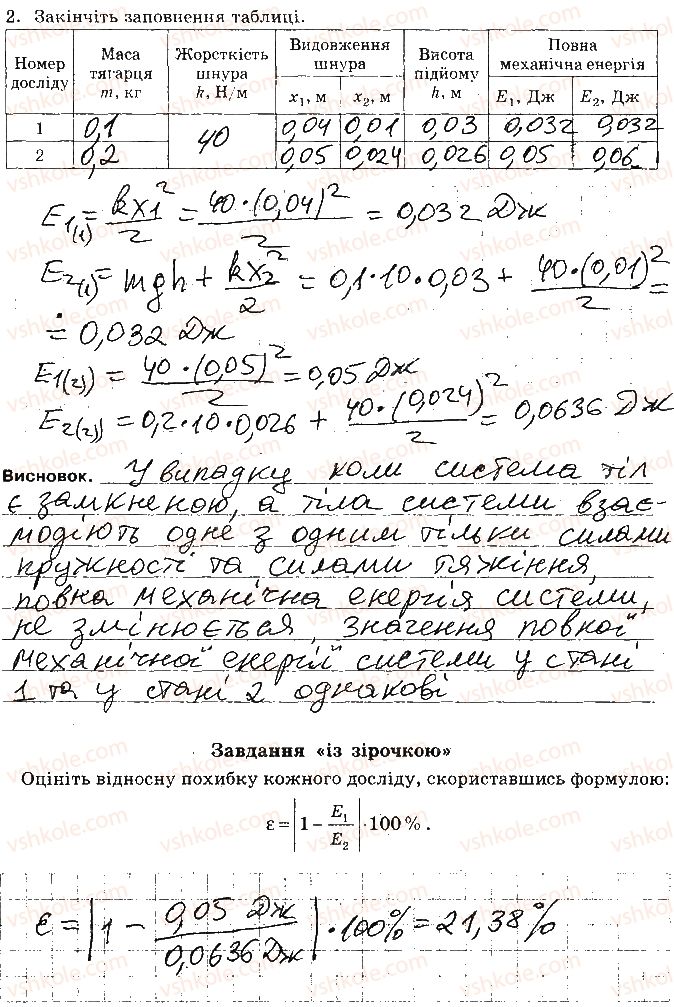 2. Закінчіть заповнення таблиці.
Номер досліду | Маса тягарця m, кг | Жорсткість шнура k, Н/м | Видовження шнура x₁, м | x₂, м | Висота підйому h, м | Повна механічна енергія E₁, Дж | E₂, Дж
1 | 0,1 | 40 | 0,04 | 0,01 | 0,03 | 0,032 | 0,032
2 | 0,2 | | 0,05 | 0,024 | 0,026 | 0,05 | 0,06
E₁₍₁₎ = kx₁²/2 = 40·(0,04)²/2 = 0,032 Дж
E₂₍₁₎ = mgh + kx₂²/2 = 0,1·10·0,03 + 40·(0,01)²/2 =
= 0,032 Дж
E₁₍₂₎ = 40·(0,05)²/2 = 0,05 Дж
E₂₍₂₎ = 0,2·10·0,026 + 40·(0,024)²/2 = 0,0636 Дж
Висновок. У випадку коли система тіл
є замкненою, а тіла системи взає-
модіють одне з одним тільки силами
пружності та силами тяжіння,
повна механічна енергія системи,
не змінюється, значення повної
механічної енергії системи у стані
1 та у стані 2 однакові
Завдання «із зірочкою»
Оцініть відносну похибку кожного досліду, скориставшись формулою:
ε = |1 − E₁/E₂| · 100 % .
ε = |1 − 0,05 Дж/0,0636 Дж| · 100% = 21,38 %